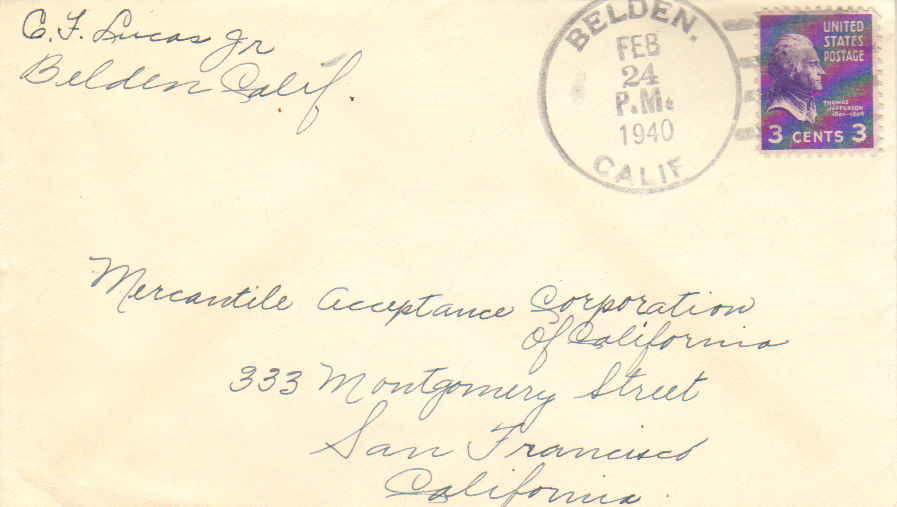 C. F. Lucas Jr
Belden Calif.
BELDEN.
FEB
24
P.M.
1940
CALIF
UNITED
STATES
POSTAGE
THOMAS
JEFFERSON
1801-1809
3 CENTS 3
Mercantile Acceptance Corporation
of California
333 Montgomery Street
San Francisco
California.